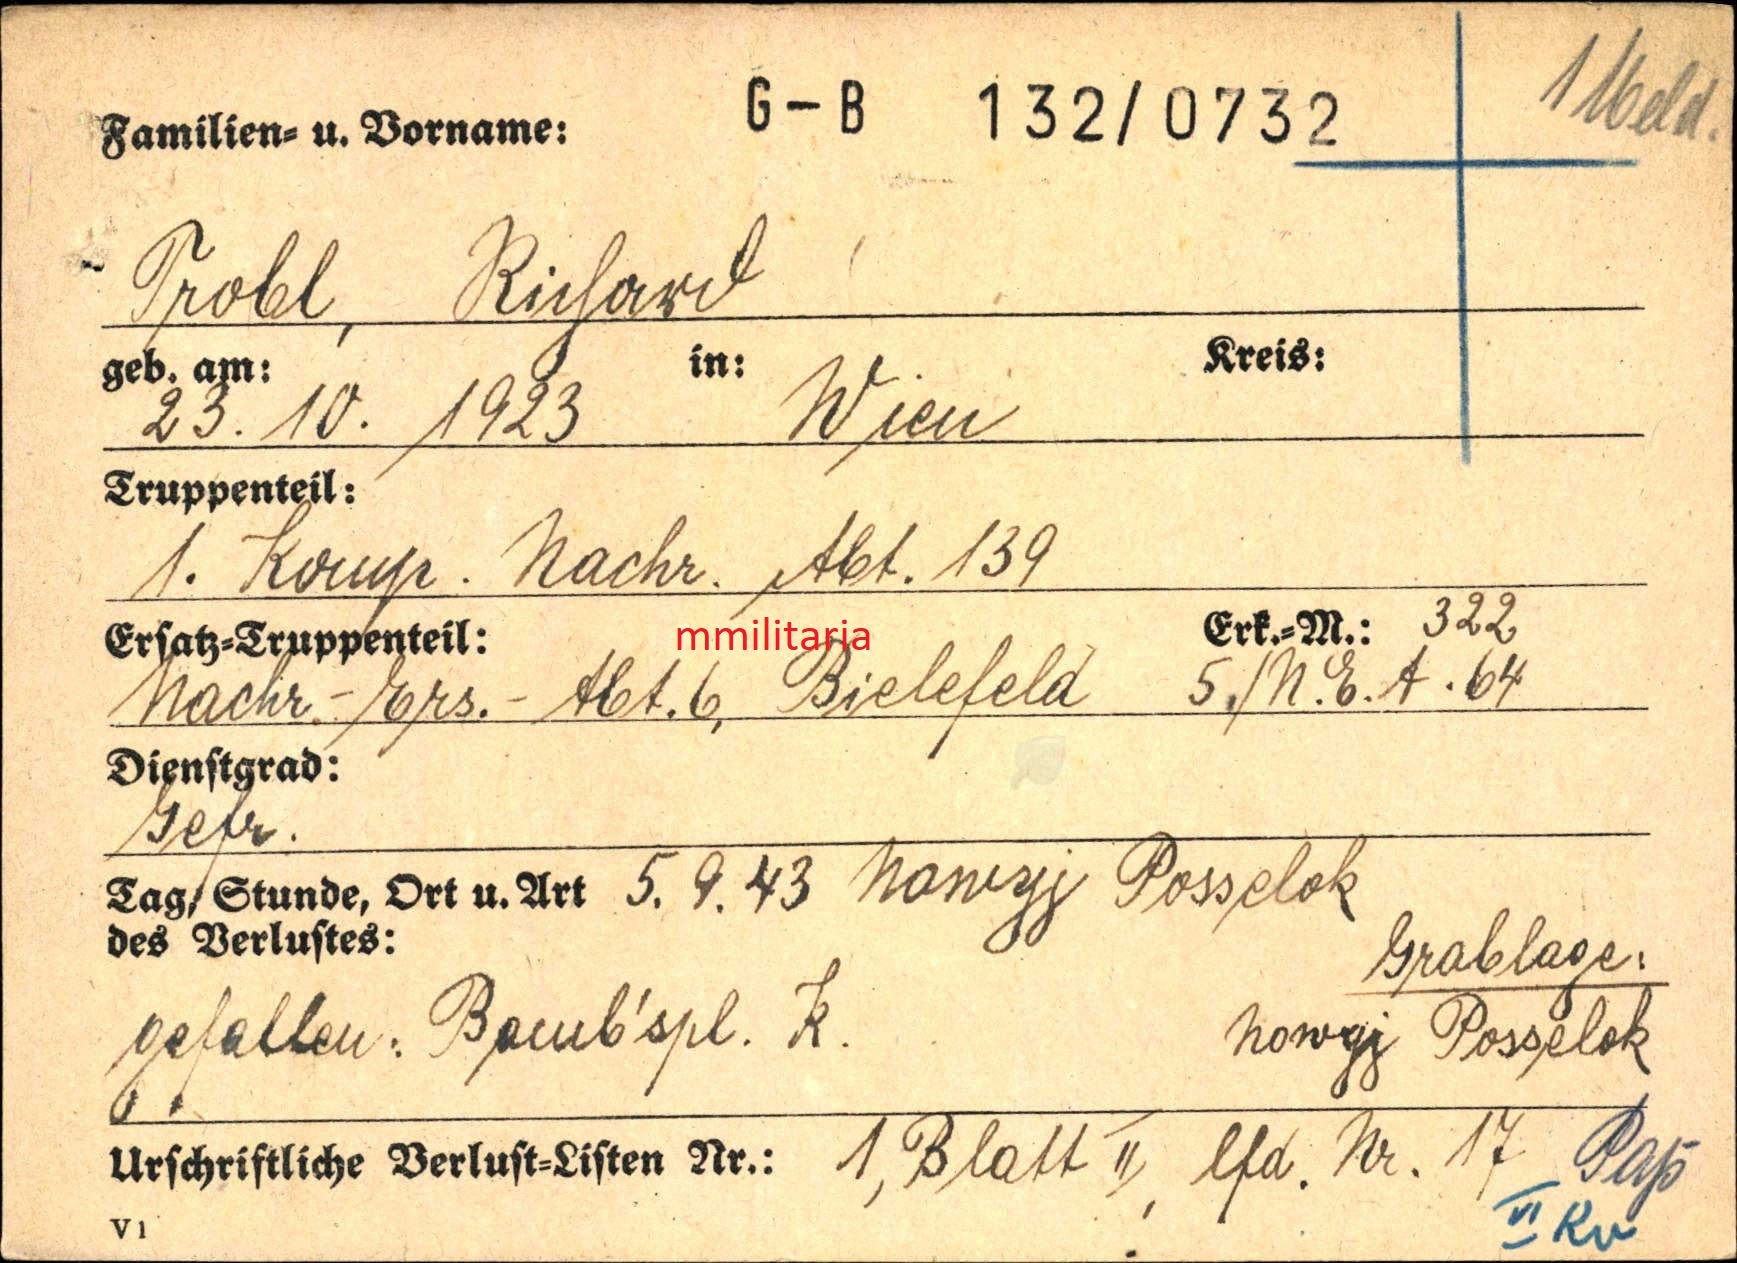 G-B 132/0732
1 Meld.
Familien- u. Vorname:
Trobl, Richard
geb. am: in: Kreis:
23. 10. 1923 Wien
Truppenteil:
1. Komp. Nachr. Abt. 139
Ersatz-Truppenteil: Erk.-M.: 322
mmilitaria
Nachr.-Ers.-Abt. 6, Bielefeld 5./N.E.A. 64
Dienstgrad:
Gefr.
Tag, Stunde, Ort u. Art 5. 9. 43 Nowyj Posselok
des Verlustes:
Grablage:
gefallen: Bomb'spl. K. Nowyj Posselok
Urschriftliche Verlust-Listen Nr.: 1, Blatt II, lfd. Nr. 17
VI
V1